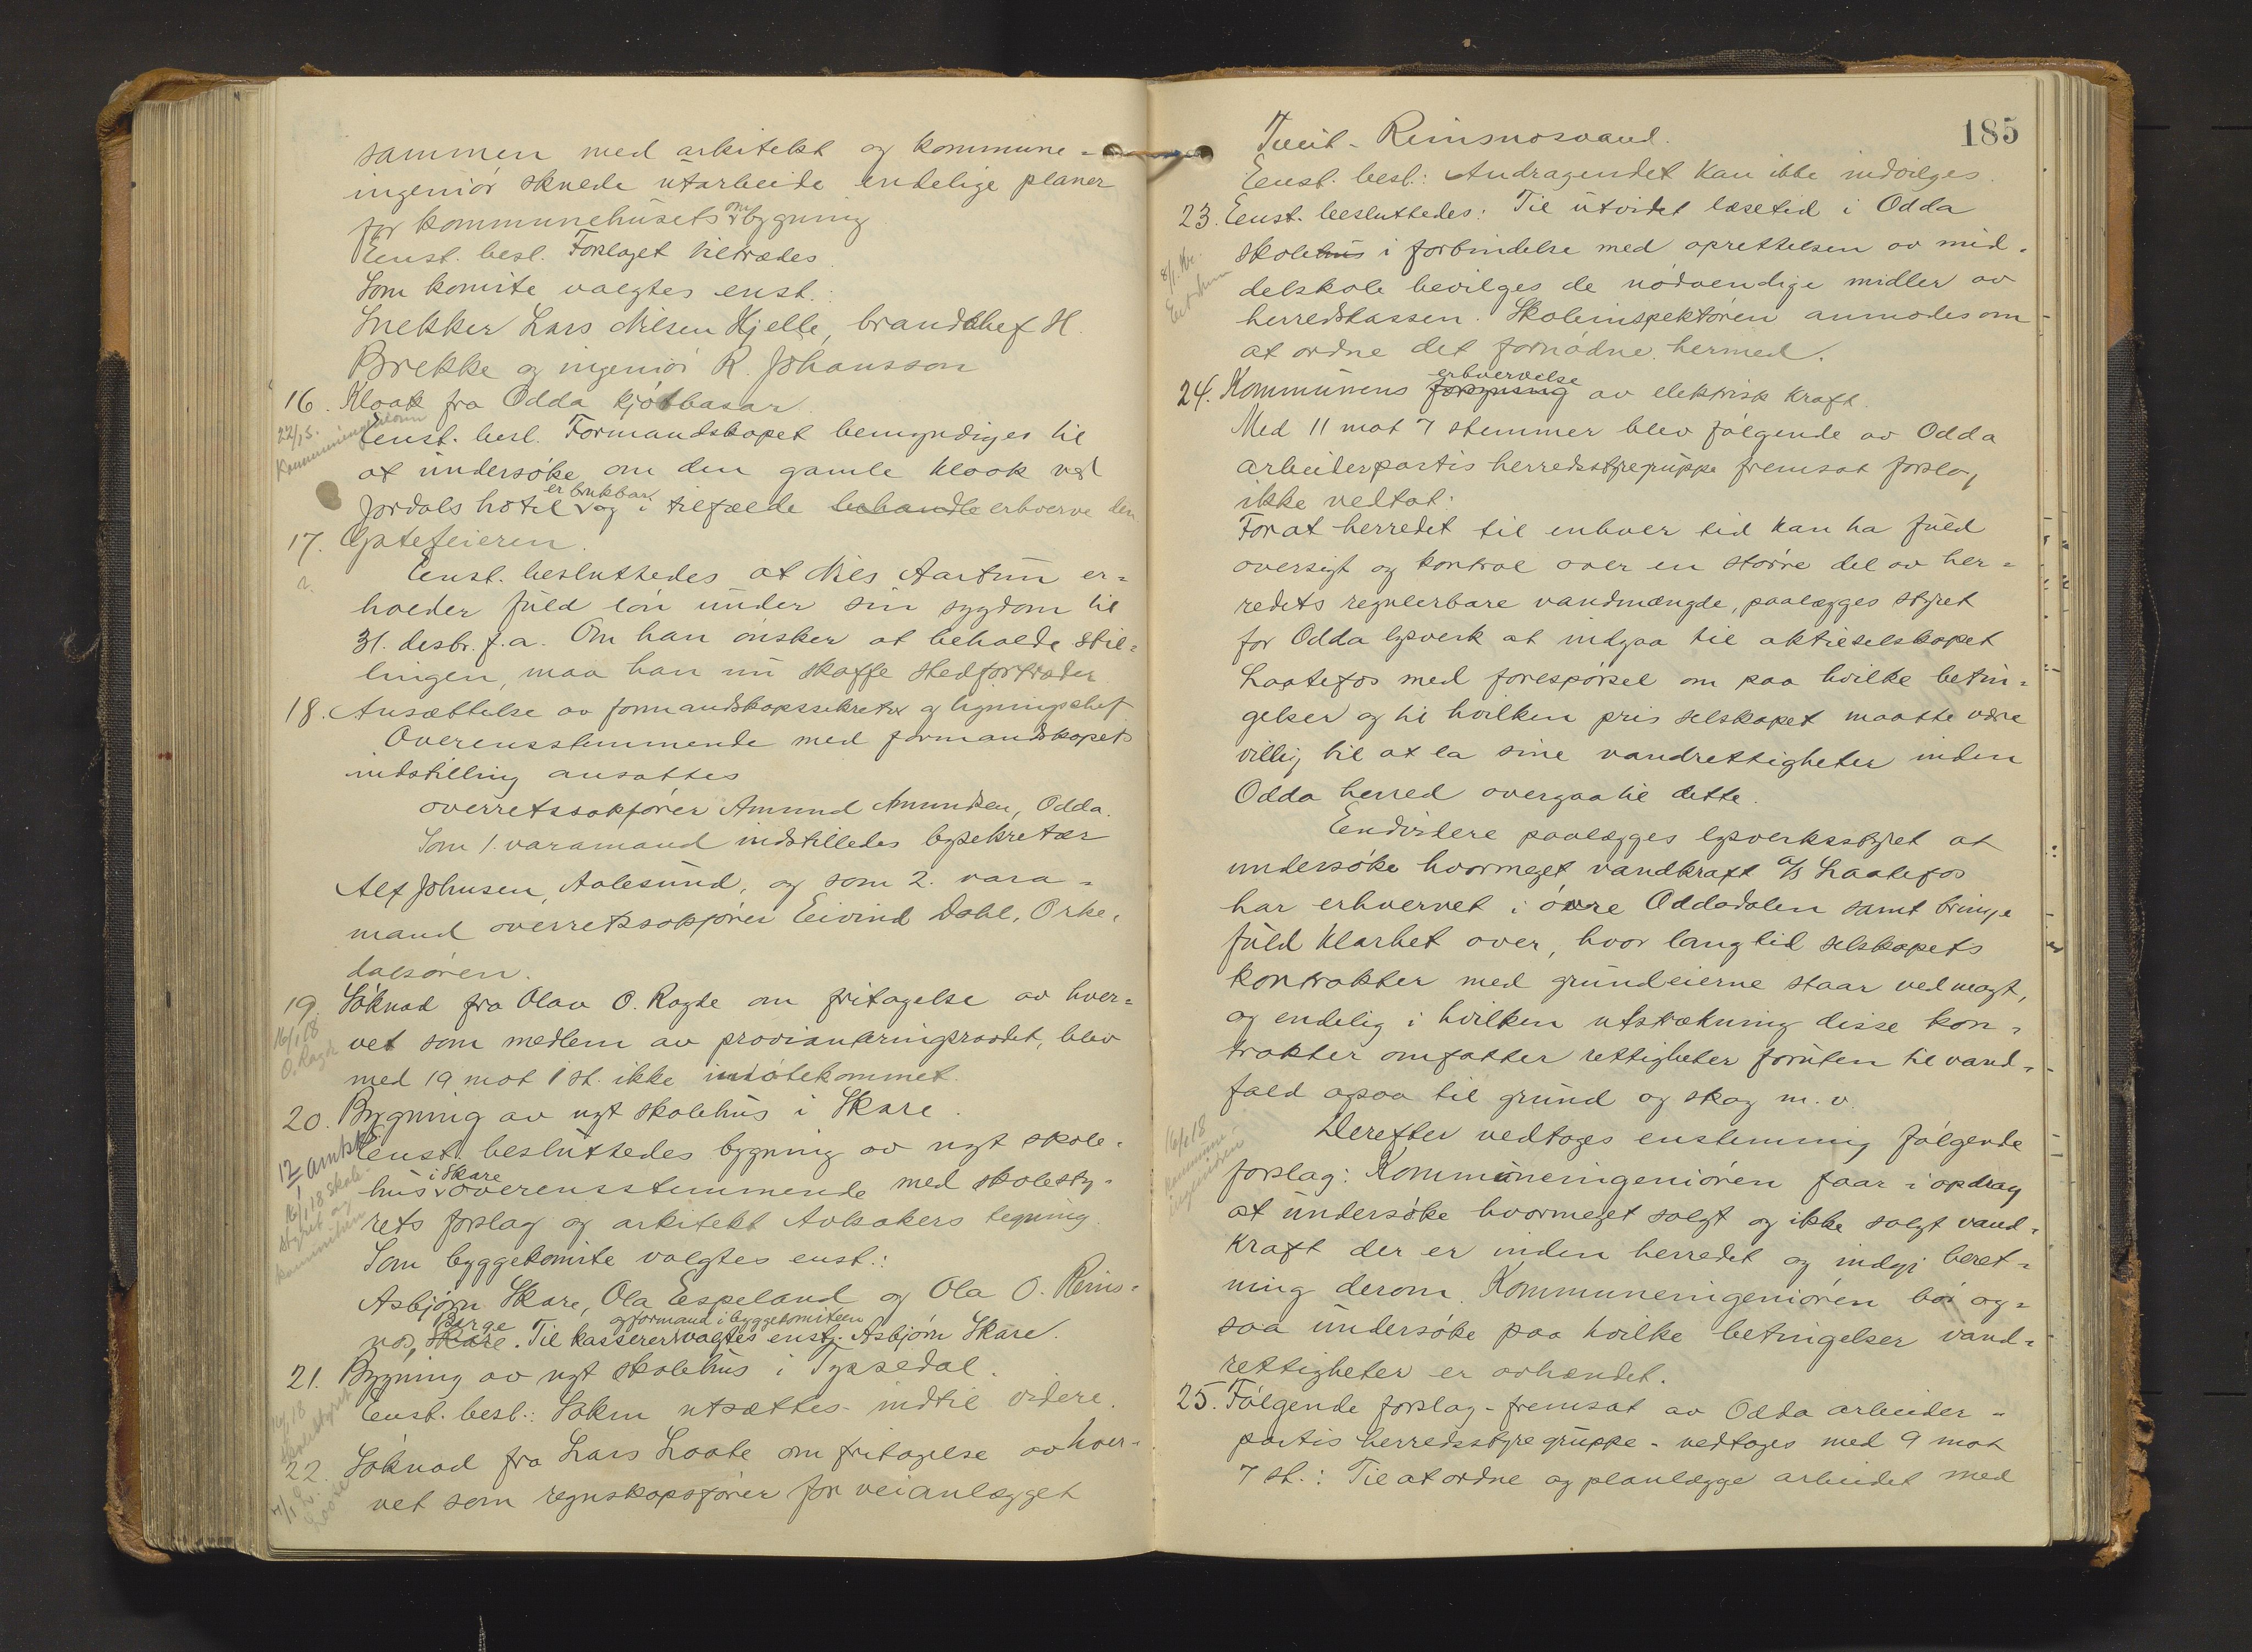 sammen med arkitekt og kommune-
ingeniör skulde utarbeide endelige planer
for kommunehusets ombygning
Eenst. besl. Forslaget tiltrædes.
Som komite valgtes enst.:
Snekker Lars Nilsen Hjelle, brandchef H.
Brekke og ingeniör R. Johansson
16. Kloak fra Odda kjötbasar.
22/1 S.
Kommuneingeniören
Eenst. besl. Formandskapet bemyndiges til
at undersöke om den gamle kloak ved
Jordals hotel er brukbar og i tilfælde behandle erhverve den
17. Gatefeieren.
Eenst. besluttedes at Nils Aartun er-
holder fuld lön under sin sygdom til
31. desbr. f.a. Om han önsker at beholde stil-
lingen, maa han nu skaffe stedfortræder
18. Ansættelse av formandskapssekretær og ligningschef
Overensstemmende med formandskapets
indstilling ansattes
overretssakförer Amund Amundsen, Odda.
Som 1. varamand indstilledes bysekretær
Alf Johnsen, Aalesund, og som 2. vara-
mand overretssakförer Eivind Dahl, Orke-
dalsören.
19. Söknad fra Olav O. Ragde om fritagelse av hver-
16/1 18
O. Ragde
vet som medlem av provianteringsraadet, blev
med 19 mot 1 st. ikke imötekommet.
20. Bygning av nyt skolehus i Skare.
Eenst. besluttedes bygning av nyt skole-
12/1 amtsk
hus i Skare overensstemmende med skolesty-
16/1 18 Skole-
styret og
komiteen
rets forslag og arkitekt Avlsakers tegning.
Som byggekomite valgtes enst.:
Asbjørn Skare, Ola Espeland og Ola O. Reins-
nos, Skare Berge. Til kasserer og formand i byggekomiteen valgtes enst. Asbjørn Skare.
21. Bygning av nyt skolehus i Tyssedal.
Eenst. besl.: Saken utsættes indtil videre.
22. Söknad fra Lars Loate om fritagelse av hver-
vet som regnskapsförer for veianlægget
185
Tveit-Reinsnosvand.
Eenst. besl.: Andragendet kan ikke indvilges.
23. Eenst. besluttedes: Til utvidet læsetid i Odda
skolehus i forbindelse med oprettelsen av mid-
delskole bevilges de nödvendige midler av
herredskassen. Skoleinspektören anmodes om
at ordne det fornödne hermed.
24. Kommunens erhvervelse av elektrisk kraft.
Med 11 mot 7 stemmer blev fölgende av Odda
arbeiderpartis herredsstyregruppe fremsat forslag
ikke vedtat:
For at herredet til enhver tid kan ha fuld
oversigt og kontrol over en större del av her-
redets regulerbare vandmængde, paalægges styret
for Odda lysverk at indgaa til aktieselskapet
Laatefos med forespörsel om paa hvilke betin-
gelser og til hvilken pris selskapet maatte være
villig til at la sine vandrettigheter inden
Odda herred overgaa til dette.
Eendvidere paalægges lysverksstyret at
undersöke hvormeget vandkraft A/S Laatefos
har erhvervet i övre Oddadalen samt bringe
fuld klarhet over, hvor lang tid selskapets
kontrakter med grundeierne staar ved magt,
og endelig i hvilken utstrækning disse kon-
trakter omfatter rettigheter foruten til vand-
fald ogsaa til grund og skog m.v.
16/1 18
kommune-
ingeniören
Derefter vedtoges enstemmig fölgende
forslag: Kommuneingeniören faar i opdrag
at undersöke hvormeget solgt og ikke solgt vand-
kraft der er inden herredet og indgi beret-
ning derom. Kommuneingeniören bör og-
saa undersöke paa hvilke betingelser vand-
rettigheter er avhændet.
25. Fölgende forslag - fremsat av Odda arbeider-
partis herredsstyregruppe - vedtoges med 9 mot
7 st.: Til at ordne og planlægge arbeidet med